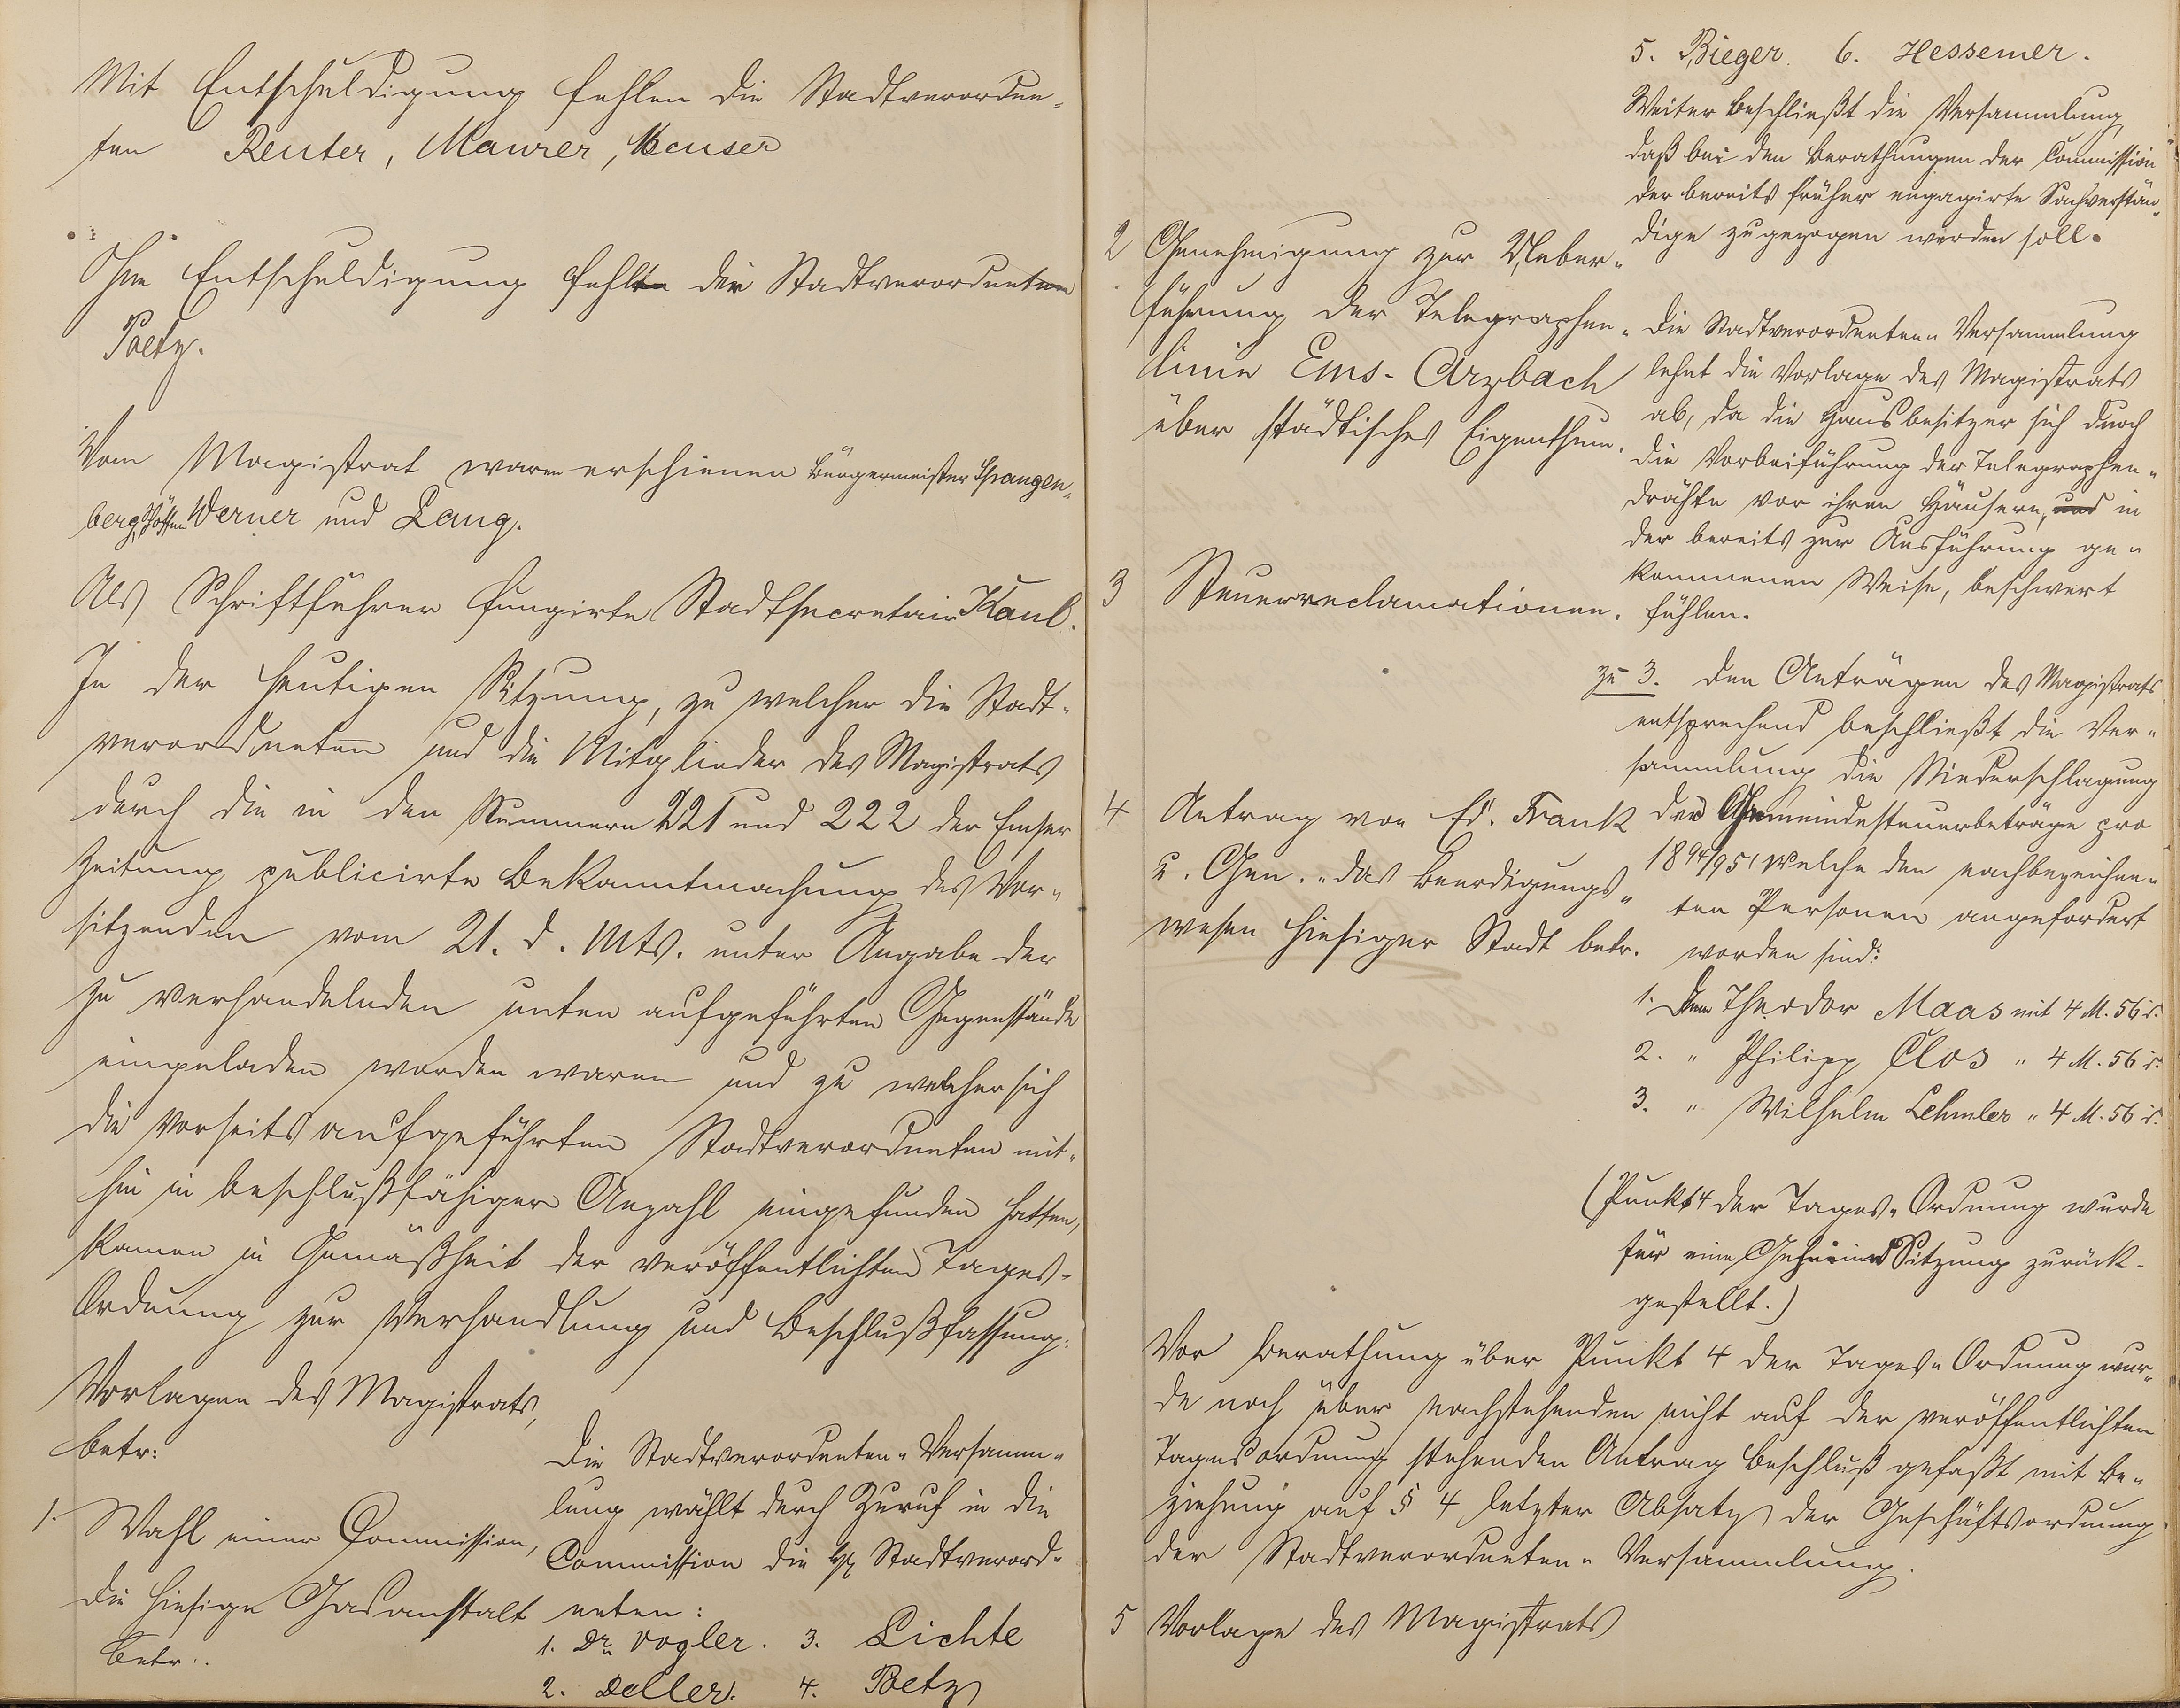 Mit Entschuldigung fehlen die Stadtverordne-
ten Reuter, Maurer, Heuser
Ohne Entschuldigung fehlte der Stadtverordnete
Poetz.
Vom Magistrat waren erschienen Bürgermeister Spangen-
berg, Schöffen Werner und Lang.
Als Schriftführer fungirte Stadtsecretair Kaul.
In der heutigen Sitzung, zu welcher die Stadt-
verordneten und die Mitglieder des Magistrats
durch die in den Nummern 221 und 222 der Emser
Zeitung publicirte Bekanntmachung des Vor-
sitzenden vom 21. d. Mts. unter Angabe der
zu verhandelnden unten aufgeführten Gegenstände
eingeladen worden waren und zu welcher sich
die vorseits aufgeführten Stadtverordneten mit-
hin in beschlußfähiger Anzahl eingefunden hatten,
kamen in Gemäßheit der veröffentlichten Tages-
Ordnung zur Verhandlung und Beschlußfassung:
Vorlagen des Magistrats,
betr:
1. Wahl einer Commission,
die hiesige Gasanstalt
betr..
Die Stadtverordneten-Versamm-
lung wählt durch Zuruf in die
Commission die Stadtverord-
neten:
1. Dr. Vogler. 3. Lichte
2. Deller. 4. Poetz
5. Bieger. 6. Hessemer.
Weiter beschließt die Versammlung,
daß bei den Berathungen der Commission
der bereits früher engagirte Sachverstän-
dige zugezogen werden soll.
2 Genehmigung zur Ueber-
führung der Telegraphen-
linie Ems-Arzbach
über städtisches Eigenthum.
Die Stadtverordneten-Versammlung
lehnt die Vorlage des Magistrats
ab, da die Hausbesitzer sich durch
die Vorbeiführung der Telegraphen-
drähte vor ihren Häusern, und in
der bereits zur Ausführung ge-
kommenen Weise, beschwert
fühlen.
3 Steuerreclamationen.
zu 3. Den Anträgen des Magistrats
entsprechend beschließt die Ver-
sammlung die Niederschlagung
der Gemeindesteuerbeträge pro
1894/95, welche den nachbezeichne-
ten Personen angefordert
worden sind:
1. Dem Theodor Maas mit 4 M. 56 d.
2. " Philipp Clos " 4 M. 56 d.
3. " Wilhelm Lehmler " 4 M. 56 d.
4 Antrag von Ed. Frank
u. Gen. "das Beerdigungs-
wesen hiesiger Stadt betr.
(Punkt 4 der Tages-Ordnung wurde
für eine Geheime Sitzung zurück-
gestellt.)
Vor Berathung über Punkt 4 der Tages-Ordnung wur-
de noch über nachstehenden nicht auf der veröffentlichten
Tagesordnung stehenden Antrag Beschluß gefaßt mit Be-
ziehung auf § 4 letzter Absatz der Geschäftsordnung
der Stadtverordneten-Versammlung.
5 Vorlage des Magistrats